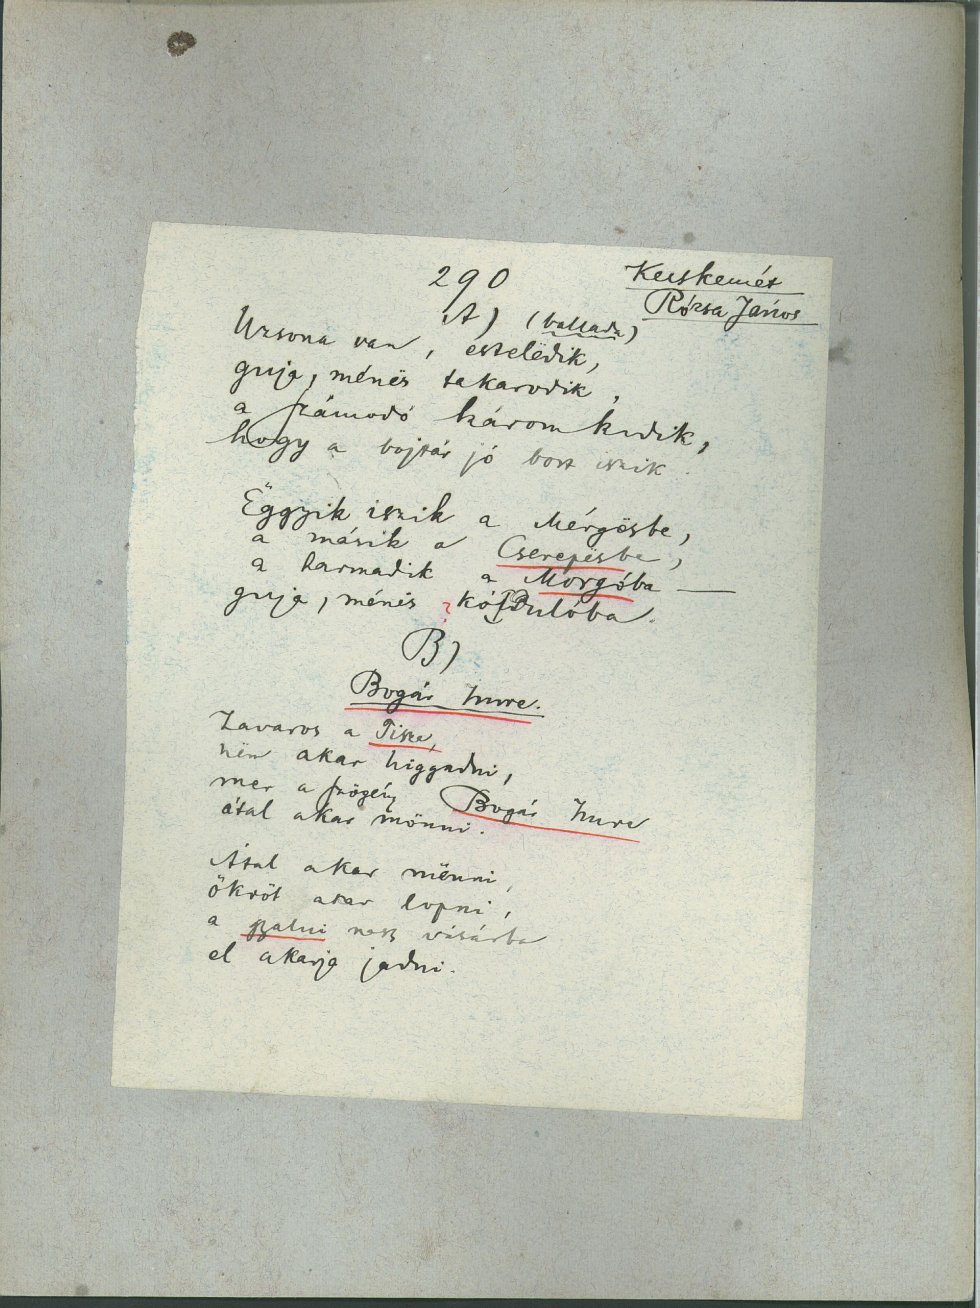 290
Kecskemét
Rózsa János
A) (ballada)
Uzsona van, estelëdik,
guja, ménës takarodik,
a számodó három kedik,
hogy a bojtár jó bort iszik.
Ëggyik iszik a Mérgësbe,
a másik a Cserepësbe,
a harmadik a Morgóba —
guja, ménës ?
B)
Bogár Imre.
Zavaros a Tisza,
nëm akar higgadni,
mer a szögény Bogár Imre
átal akar mönni.
Átal akar mënni,
ökröt akar lopni,
a nasz vásárba
el akarja jadni.